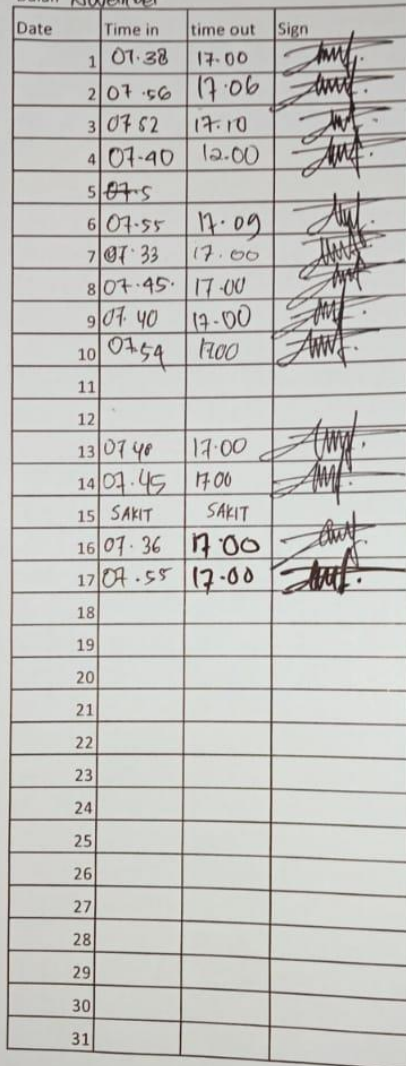 November
Date Time in time out Sign
1 07.38 17.00
2 07.56 17.06
3 07 52 17.10
4 07-40 12.00
5 07.5
6 07-55 17.09
7 07.33 17.00
8 07.45. 17-00
9 07.40 17-00
10 07.54 1700
11
12
13 07 40 17.00
14 07.45 17 00
15 SAKIT SAKIT
16 07.36 17.00
17 07.55 17.00
18
19
20
21
22
23
24
25
26
27
28
29
30
31